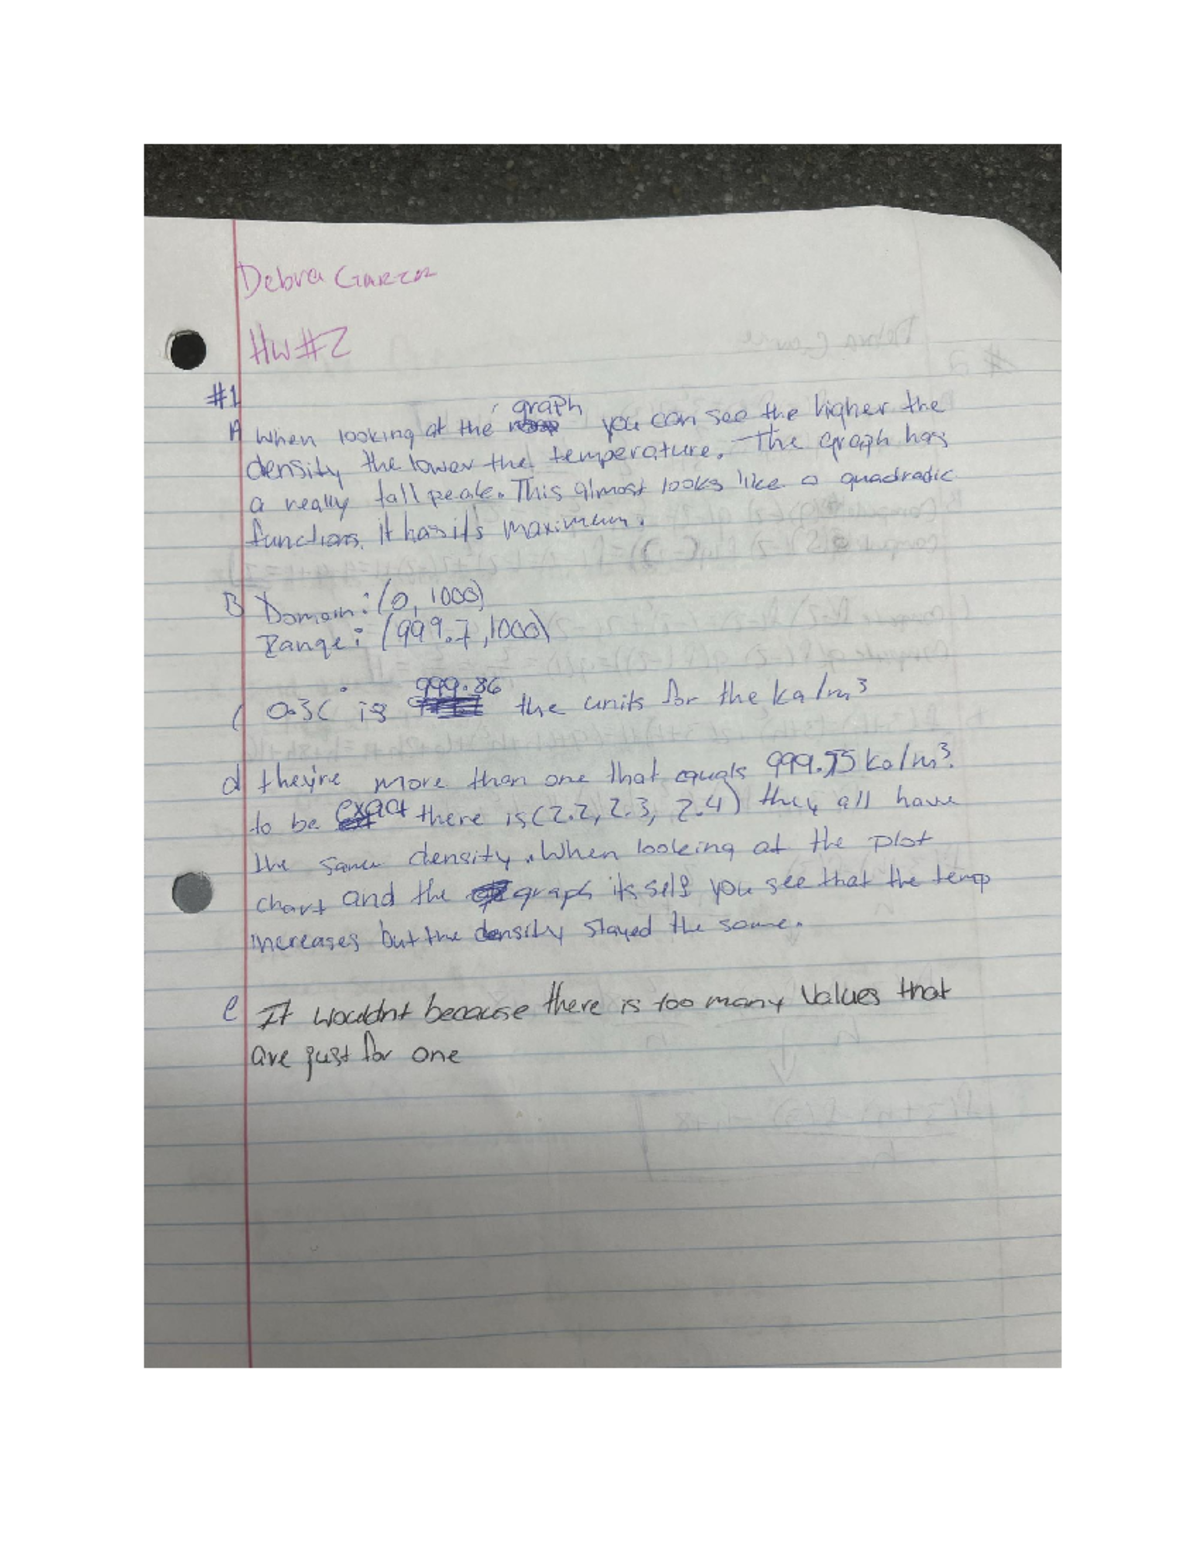 Debra Garza
HW#2
#1
graph
A When looking at the you can see the higher the
density the lower the temperature. The graph has
a really tall peak. This almost looks like a quadradic
functions. It has its maximum.
B Domain: (0, 1000)
Range: (999.7, 1000)
999.86
C 0.3C° is the units for the kg/m³
d they're more than one that equals 999.75 kg/m³.
to be exact there is (2.2, 2.3, 2.4) they all have
the same density. When looking at the plot
chart and the graph its self you see that the temp
increases but the density stayed the same.
e It wouldnt because there is too many values that
are just for one